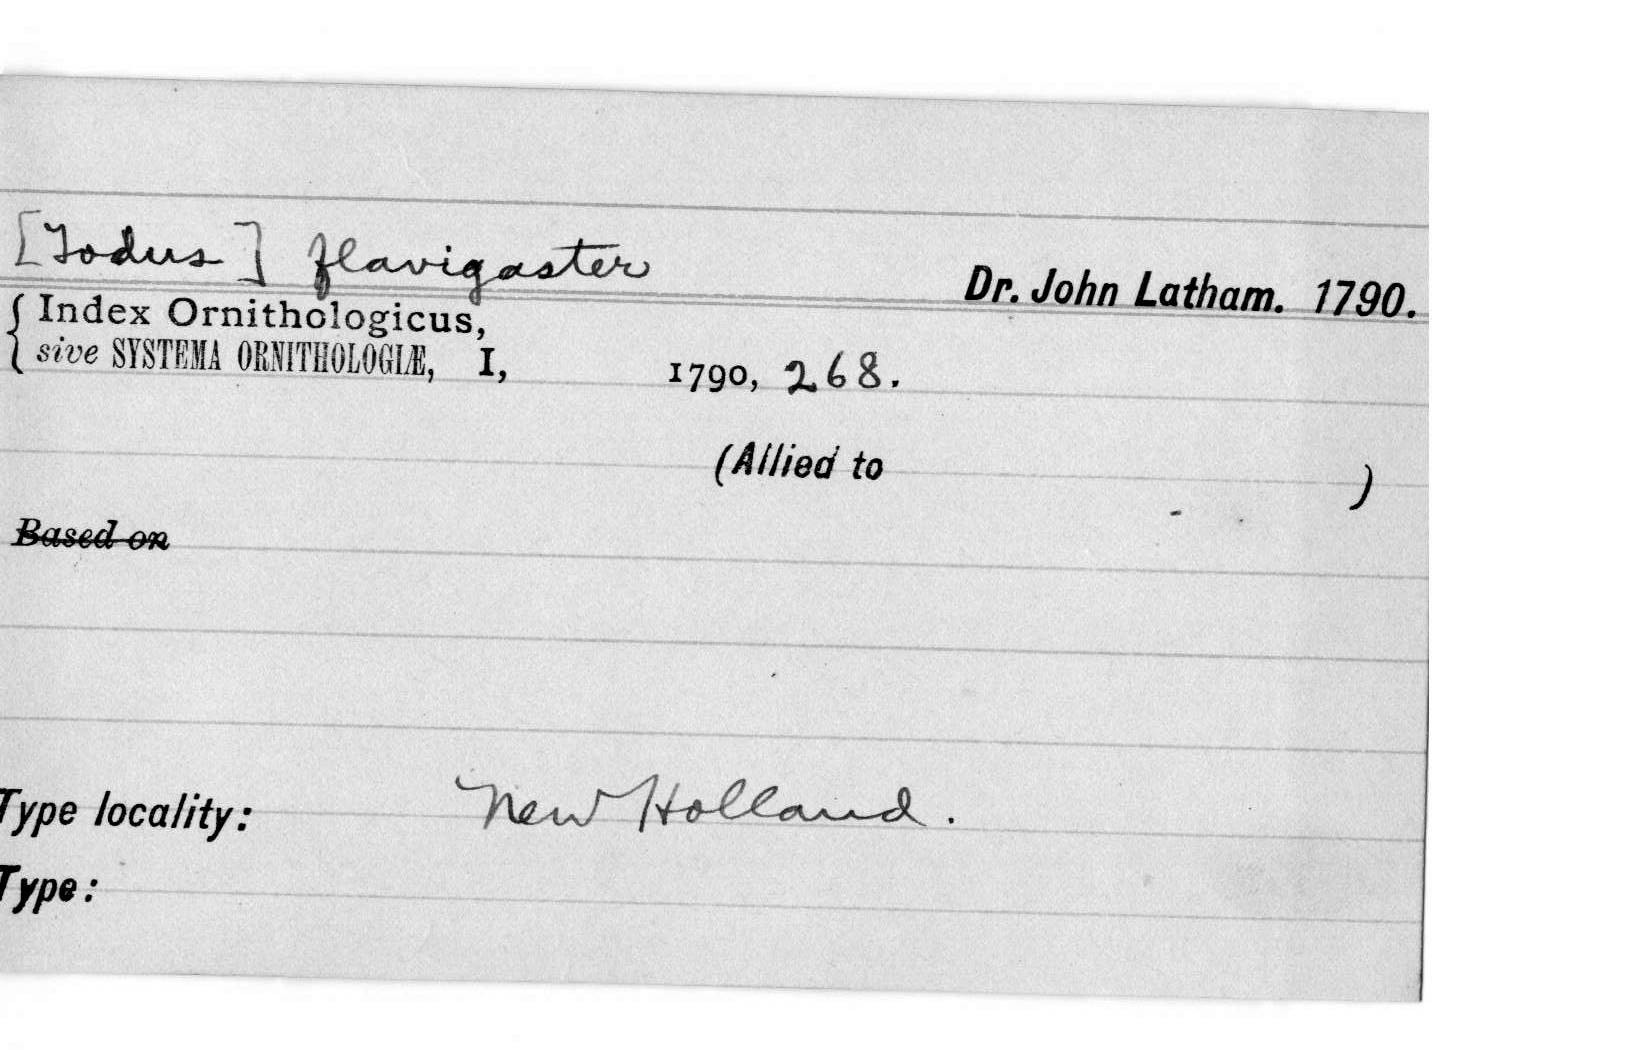 [Todus] flavigaster
Dr. John Latham. 1790.
{ Index Ornithologicus,
sive SYSTEMA ORNITHOLOGIÆ, I, 1790, 268.
(Allied to )
Based on
Type locality: New Holland.
Type: